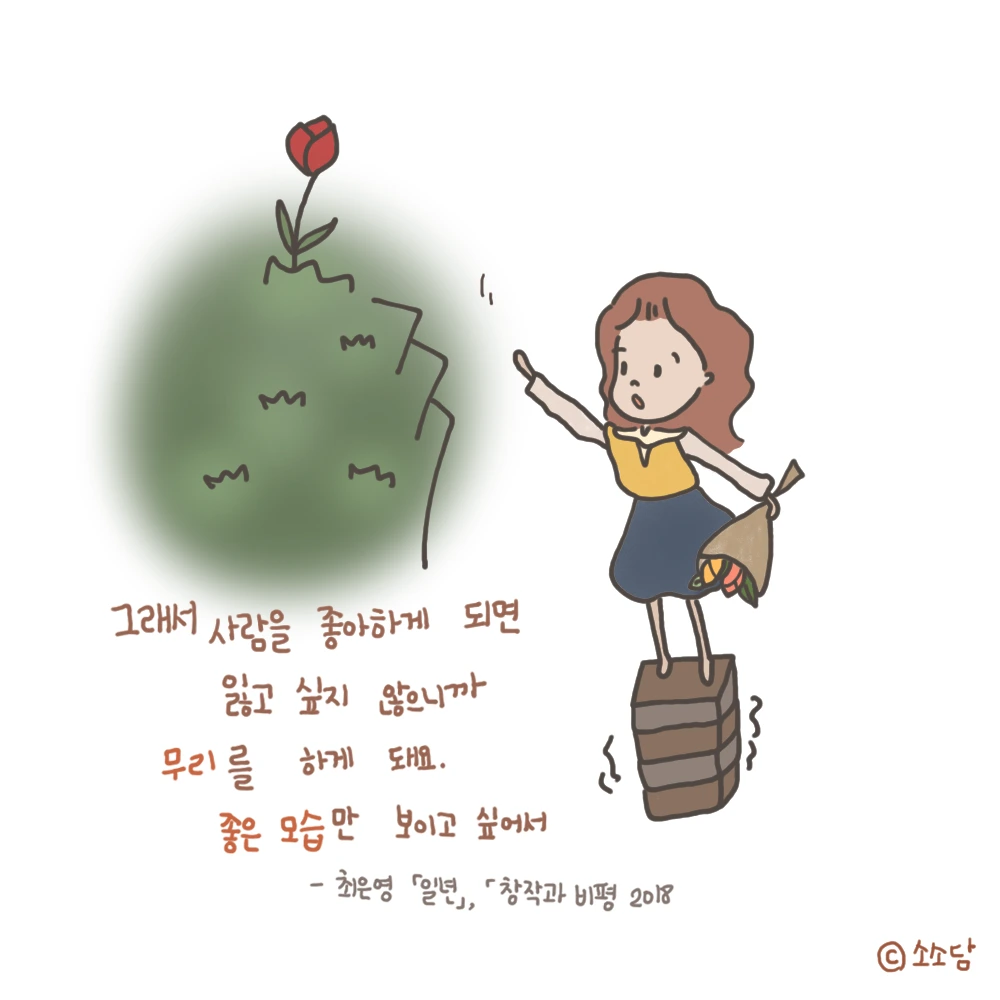 그래서 사람을 좋아하게 되면
잃고 싶지 않으니까
무리를 하게 돼요.
좋은 모습만 보이고 싶어서
- 최은영 「일년」, 「창작과 비평 2018
© 소소담